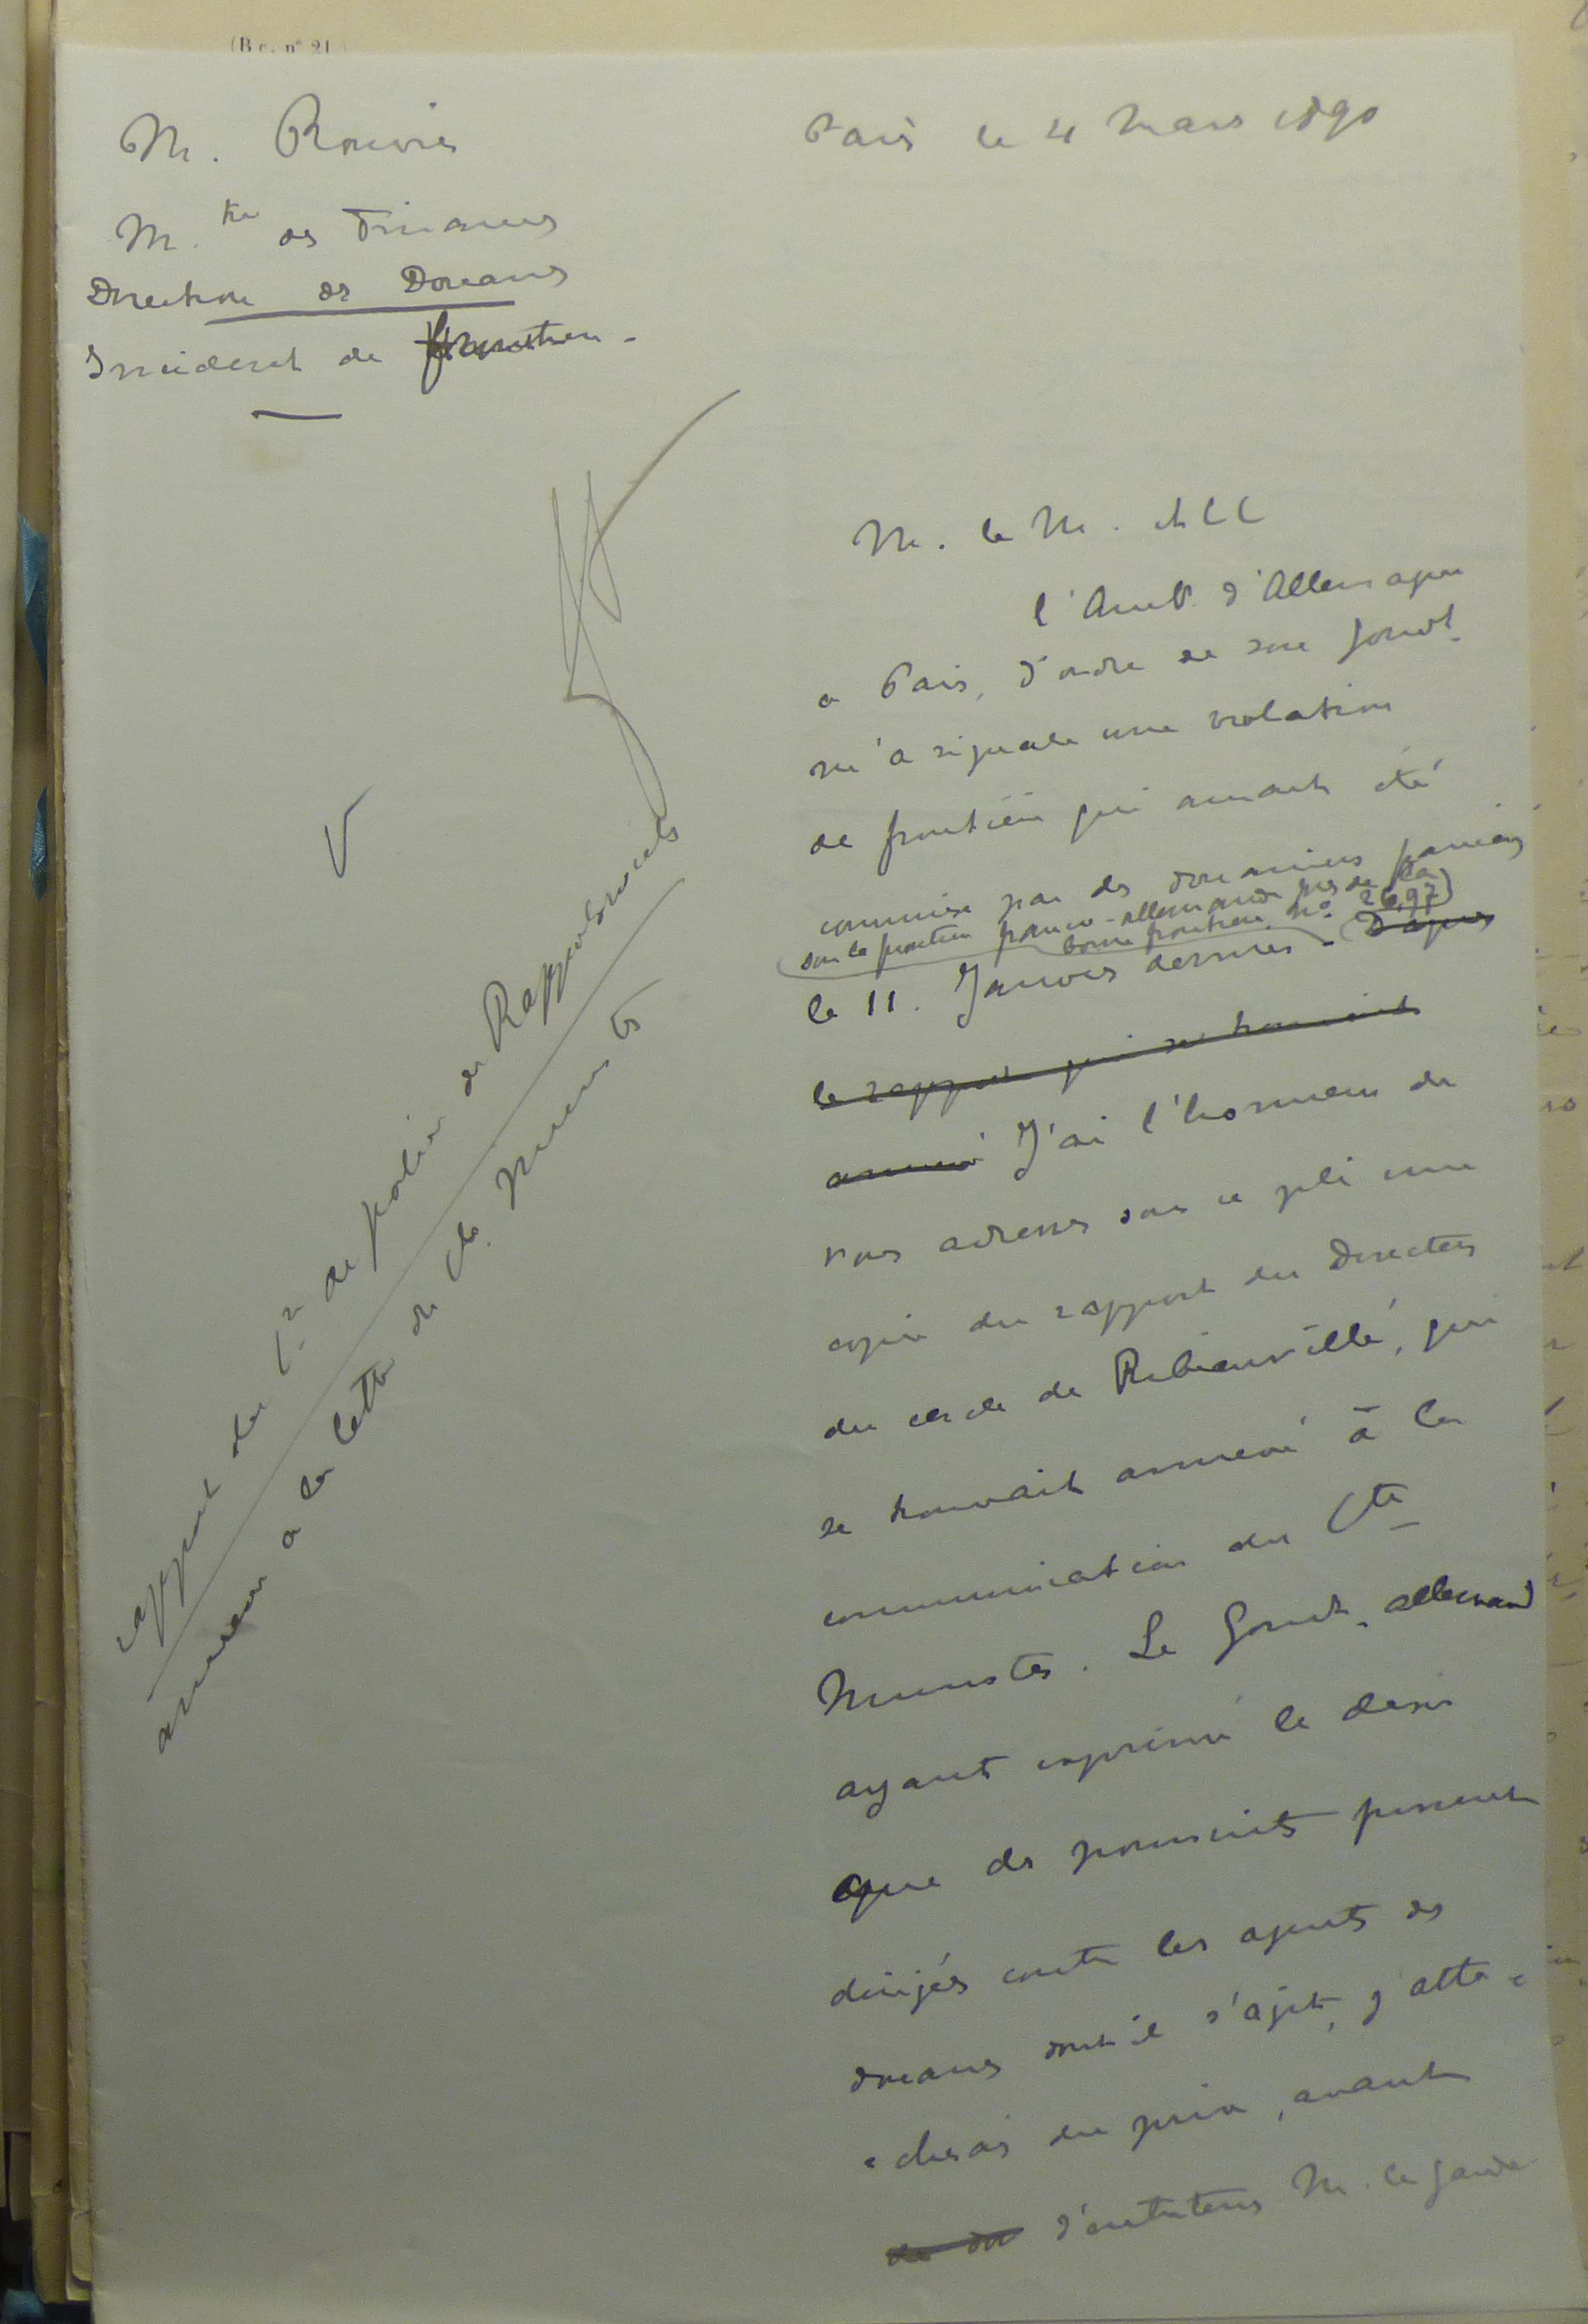 (Bc. n° 21)
M. Rouvier
M.tre des Finances
Direction des Douanes
Incident de frontière -
Paris le 4 Mars 1890
M. le M. et C C
l'Amb. d'Allemagne
a Paris, d'ordre de son Gouvt.
m'a signalé une violation
de frontière qui aurait été
commise par des douaniers français
sur la frontière franco-allemande près de la
borne frontière n° 2697)
le 11. Janvier dernier - D'après
le rapport qui se trouvait
annexé J'ai l'honneur de
vous adresser sous ce pli une
copie du rapport du Directeur
du cercle de Ribeauvillé, qui
se trouvait annexé à la
communication du Cte
Munster. Le Gouvt. allemand
ayant exprimé le désir
que des poursuites fussent
dirigées contre les agents des
douanes dont il s'agit, j'atta-
-cherais du prix, avant
d'entretenir M. le Garde
rapport du Cre de police de Rappoltsweiler
annexé a la lettre du Cte Munster